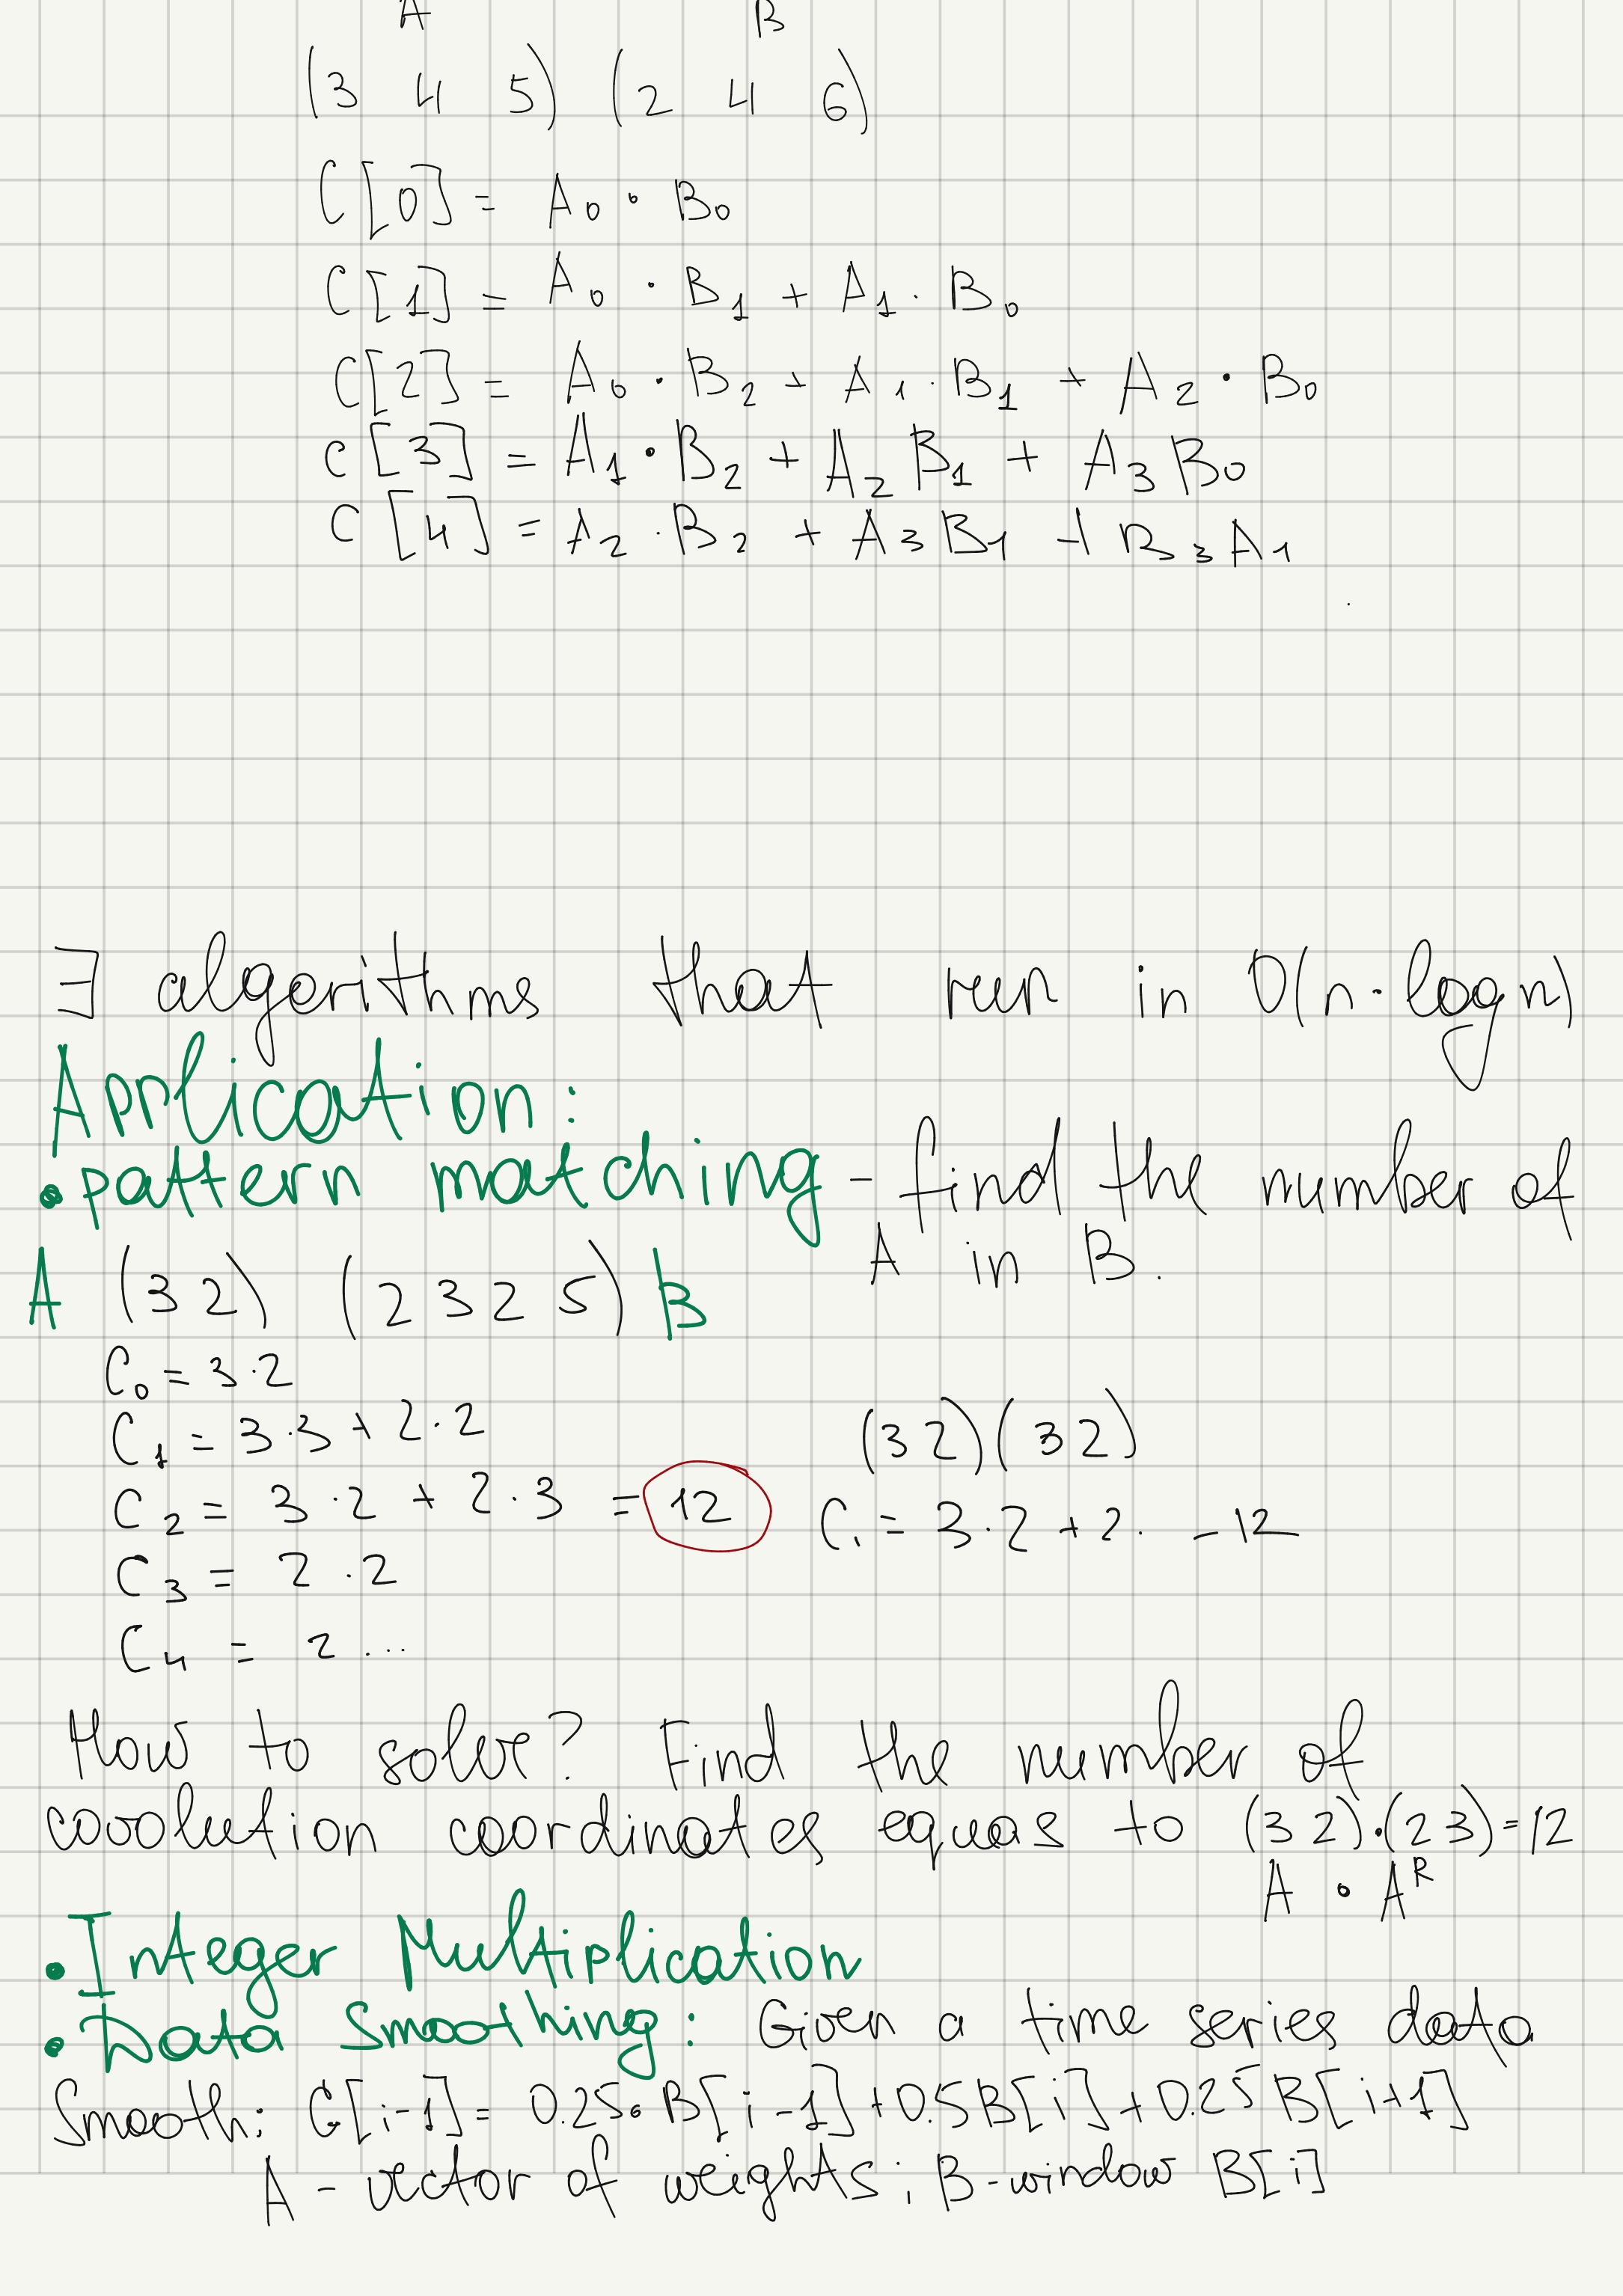 A B
(3 4 5) (2 4 6)
C[0] = A₀ · B₀
C[1] = A₀ · B₁ + A₁ · B₀
C[2] = A₀ · B₂ + A₁ · B₁ + A₂ · B₀
C[3] = A₁ · B₂ + A₂ B₁ + A₃ B₀
C[4] = A₂ · B₂ + A₃B₁ + B₃A₁
∃ algerithms that run in O(n·logn)
Application:
• pattern matching - find the number of
A in B.
A (3 2) (2 3 2 5) B
C₀ = 3·2
C₁ = 3·3 + 2·2
(3 2)(3 2)
C₂ = 3·2 + 2·3 = 12
C₁ = 3·2 + 2· - 12
C₃ = 2·2
C₄ = 2 ...
How to solve? Find the number of
covolution coordinates equas to (3 2)·(2 3) = 12
A · Aᴿ
• Integer Multiplication
• Data Smoothing: Given a time series data
Smooth: C[i-1] = 0.25·B[i-1]+0.5B[i]+0.25B[i+1]
A - vector of weights; B-window B[i]